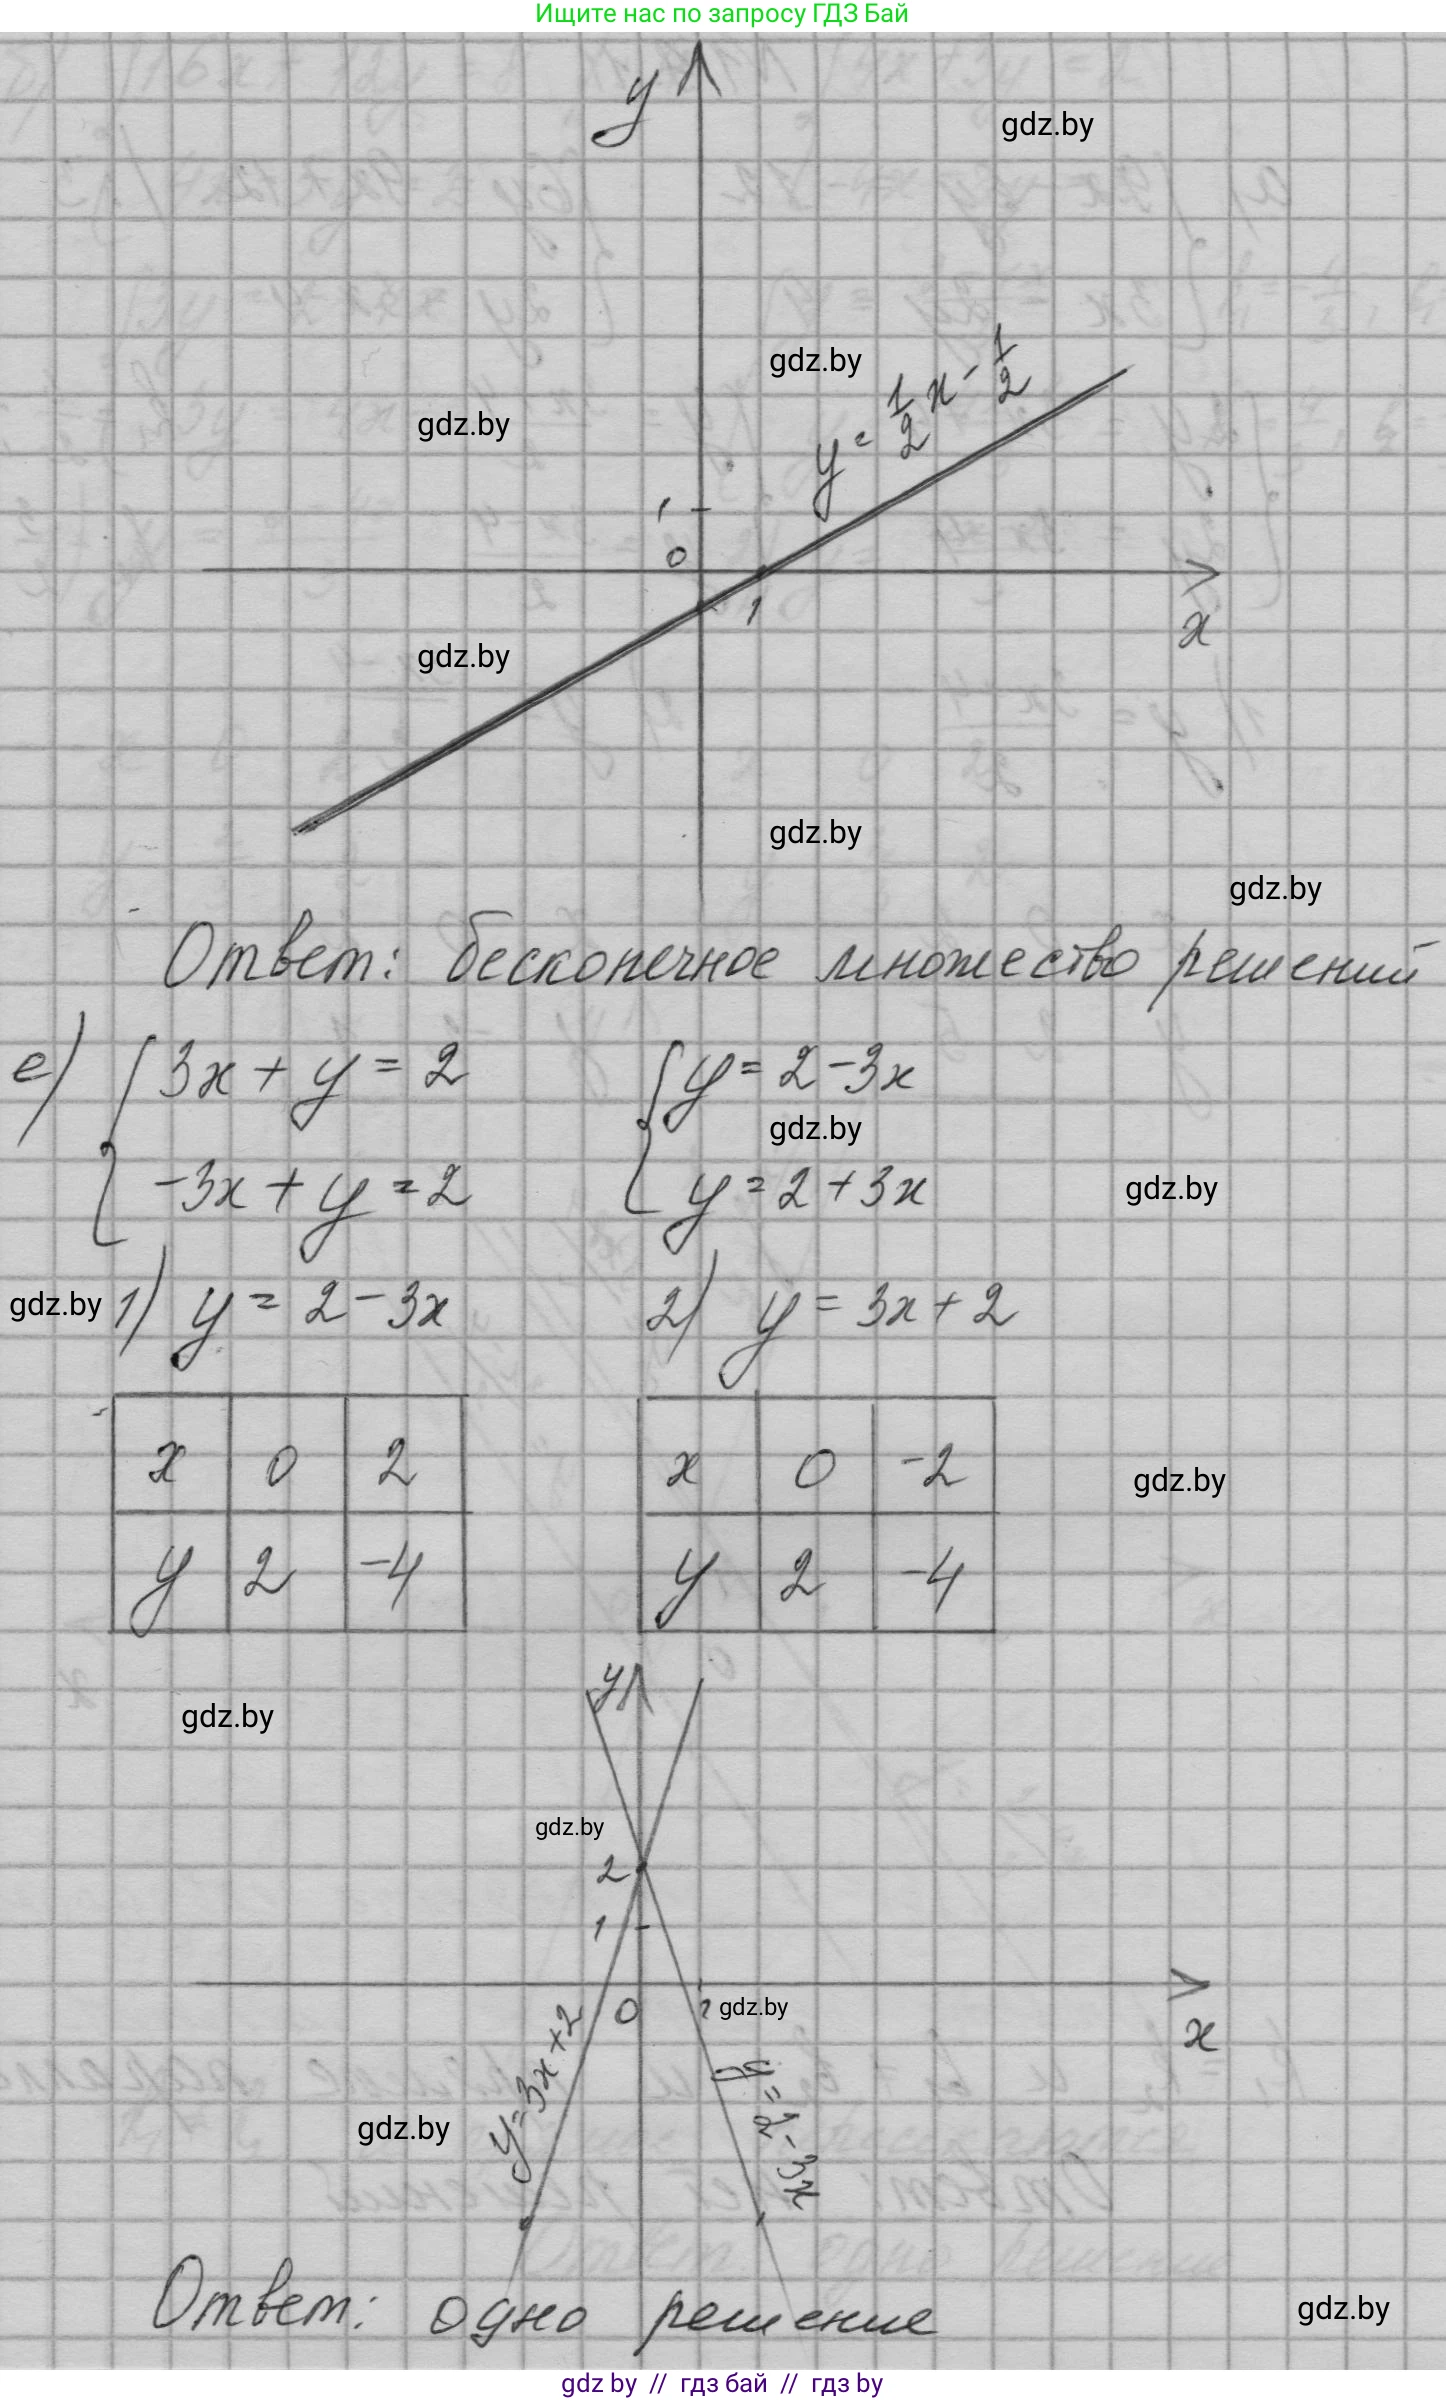 Ищите нас по запросу ГДЗ Бай
y
gdz.by
gdz.by
y = 1/2 x - 1/2
gdz.by
1
0
1
x
gdz.by
gdz.by
gdz.by
Ответ: бесконечное множество решений
е) { 3x + y = 2 { y = 2 - 3x
gdz.by
-3x + y = 2 y = 2 + 3x
gdz.by
gdz.by 1) y = 2 - 3x 2) y = 3x + 2
x 0 2 x 0 -2
gdz.by
y 2 -4 y 2 -4
y
gdz.by
gdz.by
2
1
0 1 gdz.by
x
y = 3x + 2
y = 2 - 3x
gdz.by
Ответ: одно решение
gdz.by
gdz by // гдз бай // гдз by